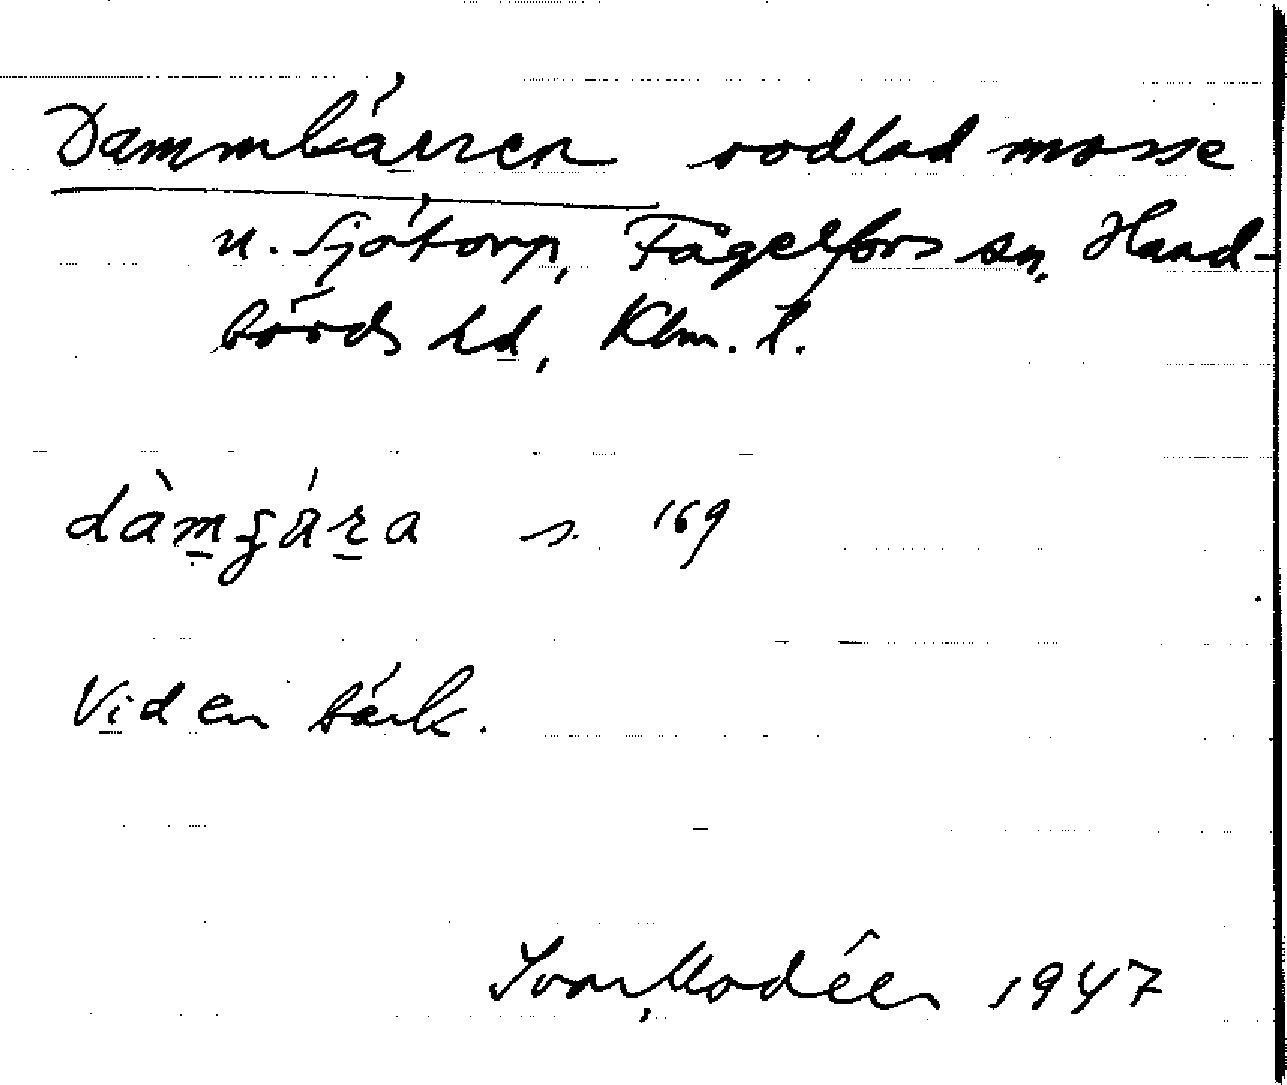 Dammkärren oodlad mosse
u. Sjötorp, Fågelfors sn, Hand-
börds hd, Klm. l.
s. 169
Vid en bäck.
Ivar Modéer 1947